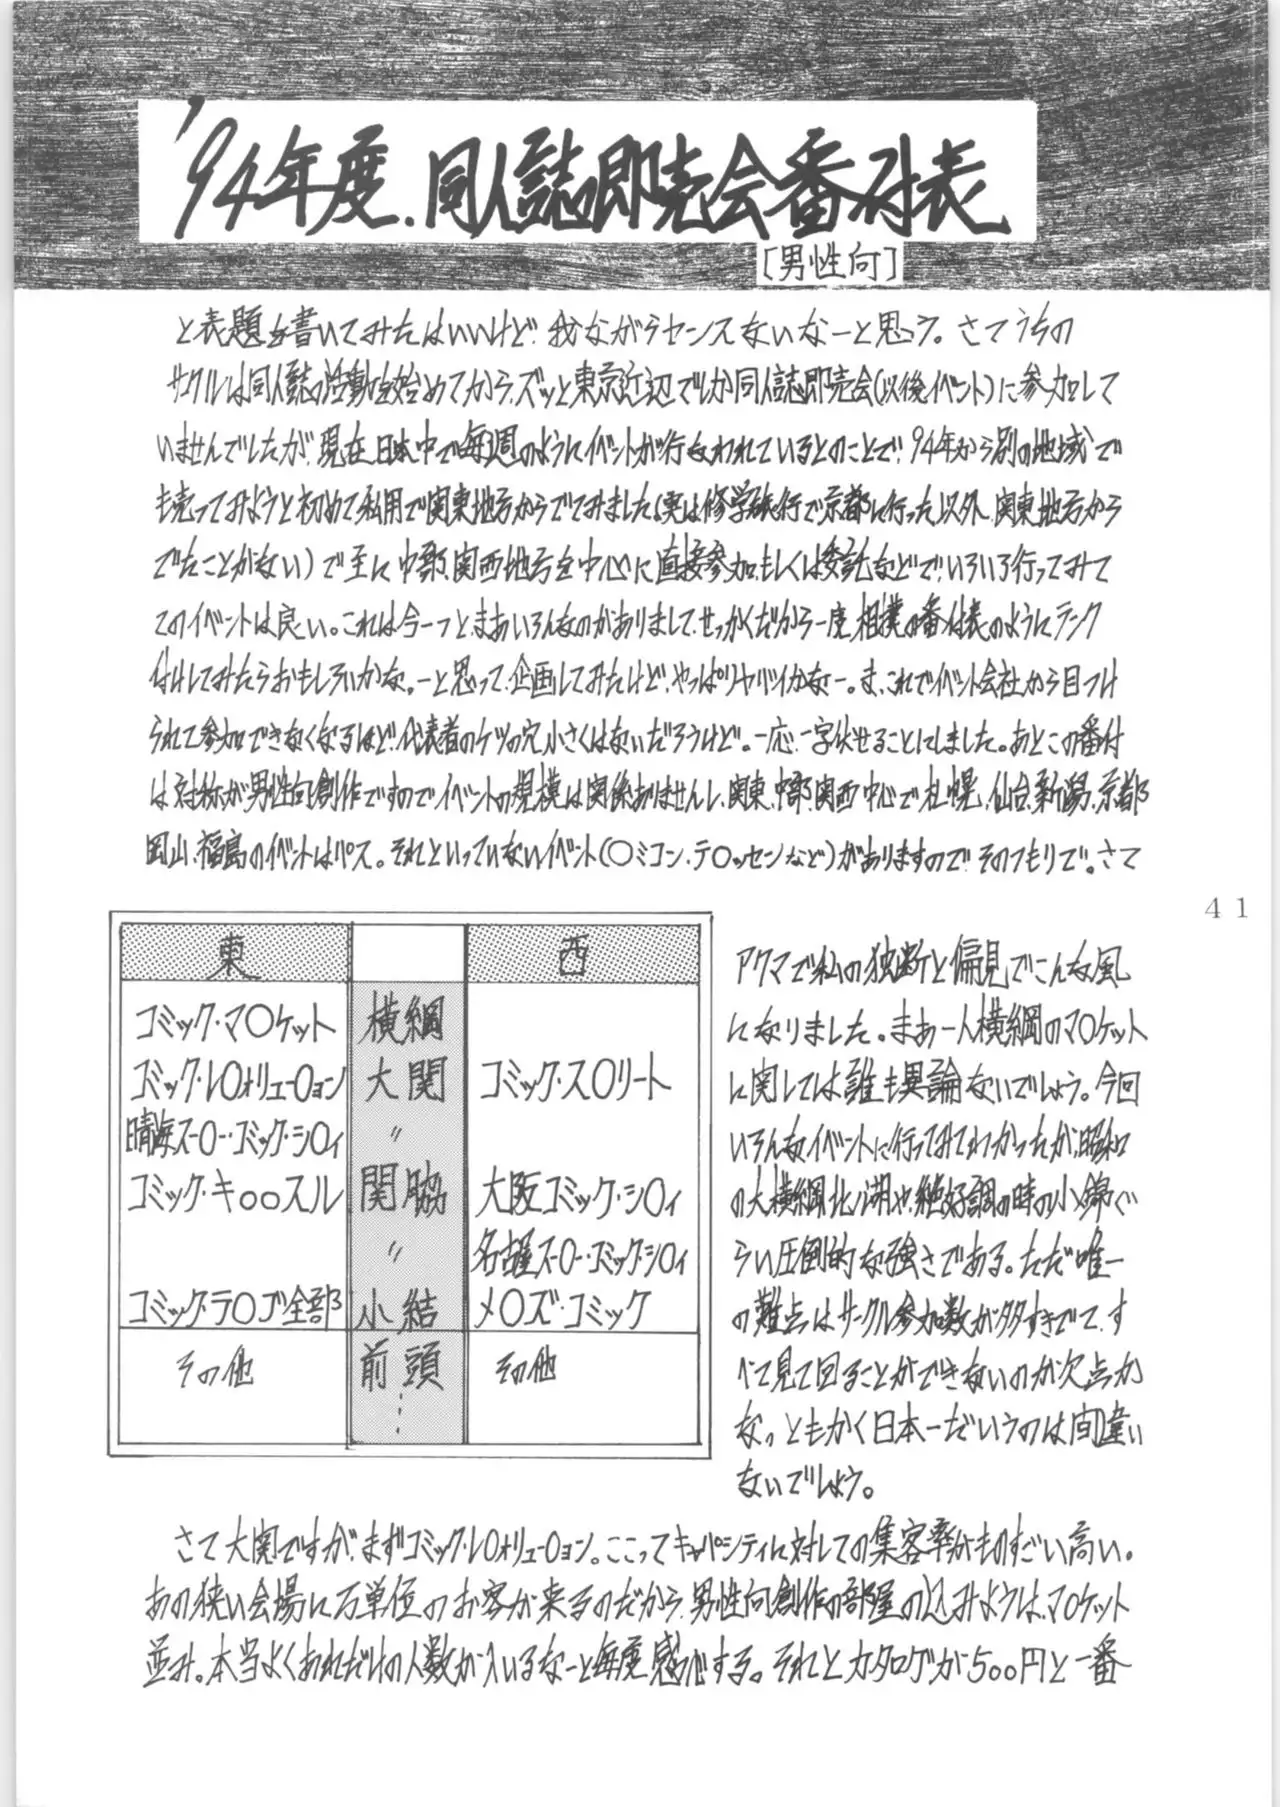 '94年度.同人誌即売会番付表
[男性向]
と表題を書いてみたはいいけど、我ながらセンスないなーと思う。さてうちの
サークルは同人誌の活動を始めてから、ズッと東京近辺でしか同人誌即売会(以後イベント)に参加して
いませんでしたが、現在日本中で毎週のようにイベントが行なわれているとのことで、94年から別の地域で
も売ってみようと初めて私用で関東地方からでてみました(実は修学旅行で京都に行った以外、関東地方から
でたことがない)で主に中部、関西地方を中心に直接参加、もしくは委託などで、いろいろ行ってみて
このイベントは良い。これは今一つと、まあいろんなのがありまして、せっかくだから一度相撲の番付表のようにランク
付けしてみたらおもしろいかな。ーと思って、企画してみたけど、やっぱりヤバイかなー。ま、これでイベント会社から目つけ
られて参加できなくなるほど、代表者のケツの穴小さくはないだろうけど。一応、一字伏せることにしました。あとこの番付
は対称が男性向創作ですのでイベントの規模は関係ありませんし、関東、中部、関西中心で札幌、仙台、新潟、京都
岡山、福島のイベントはパス。それといっていないイベント(〇ミコン、テ〇ッセンなど)がありますので、そのつもりで。さて
41
東 西
コミック・マ〇ケット 横綱
コミック・レ〇ォリュー〇ョン 大関 コミック・ス〇リート
晴海スー〇ー・コミック・シ〇ィ 〃
コミック・キ〇〇スル 関脇 大阪コミック・シ〇ィ
〃 名古屋スー〇ー・コミック・シ〇ィ
コミック・テ〇ノ全部 小結 メ〇ズ・コミック
その他 前頭 その他
アクマで私の独断と偏見でこんな風
になりました。まあ一人横綱のマ〇ケット
に関しては誰も異論ないでしょう。今回
いろんなイベントに行ってみてわかったが、昭和
の大横綱北ノ湖や、絶好調の時の小錦ぐ
らい圧倒的な強さである。ただ唯一
の難点はサークル参加数が多すぎでて、す
べて見て回ることができないのが欠点か
な。ともかく日本一だいうのは間違い
ないでしょう。
さて大関ですが、まずコミック・レ〇ォリュー〇ョン。ここってキャパシティに対しての集客率がものすごい高い。
あの狭い会場に万単位のお客が来るのだから、男性向創作の部屋の込みようは、マ〇ケット
並み。本当よくあれだけの人数が入いるなーと毎度感心する。それとカタログが500円と一番